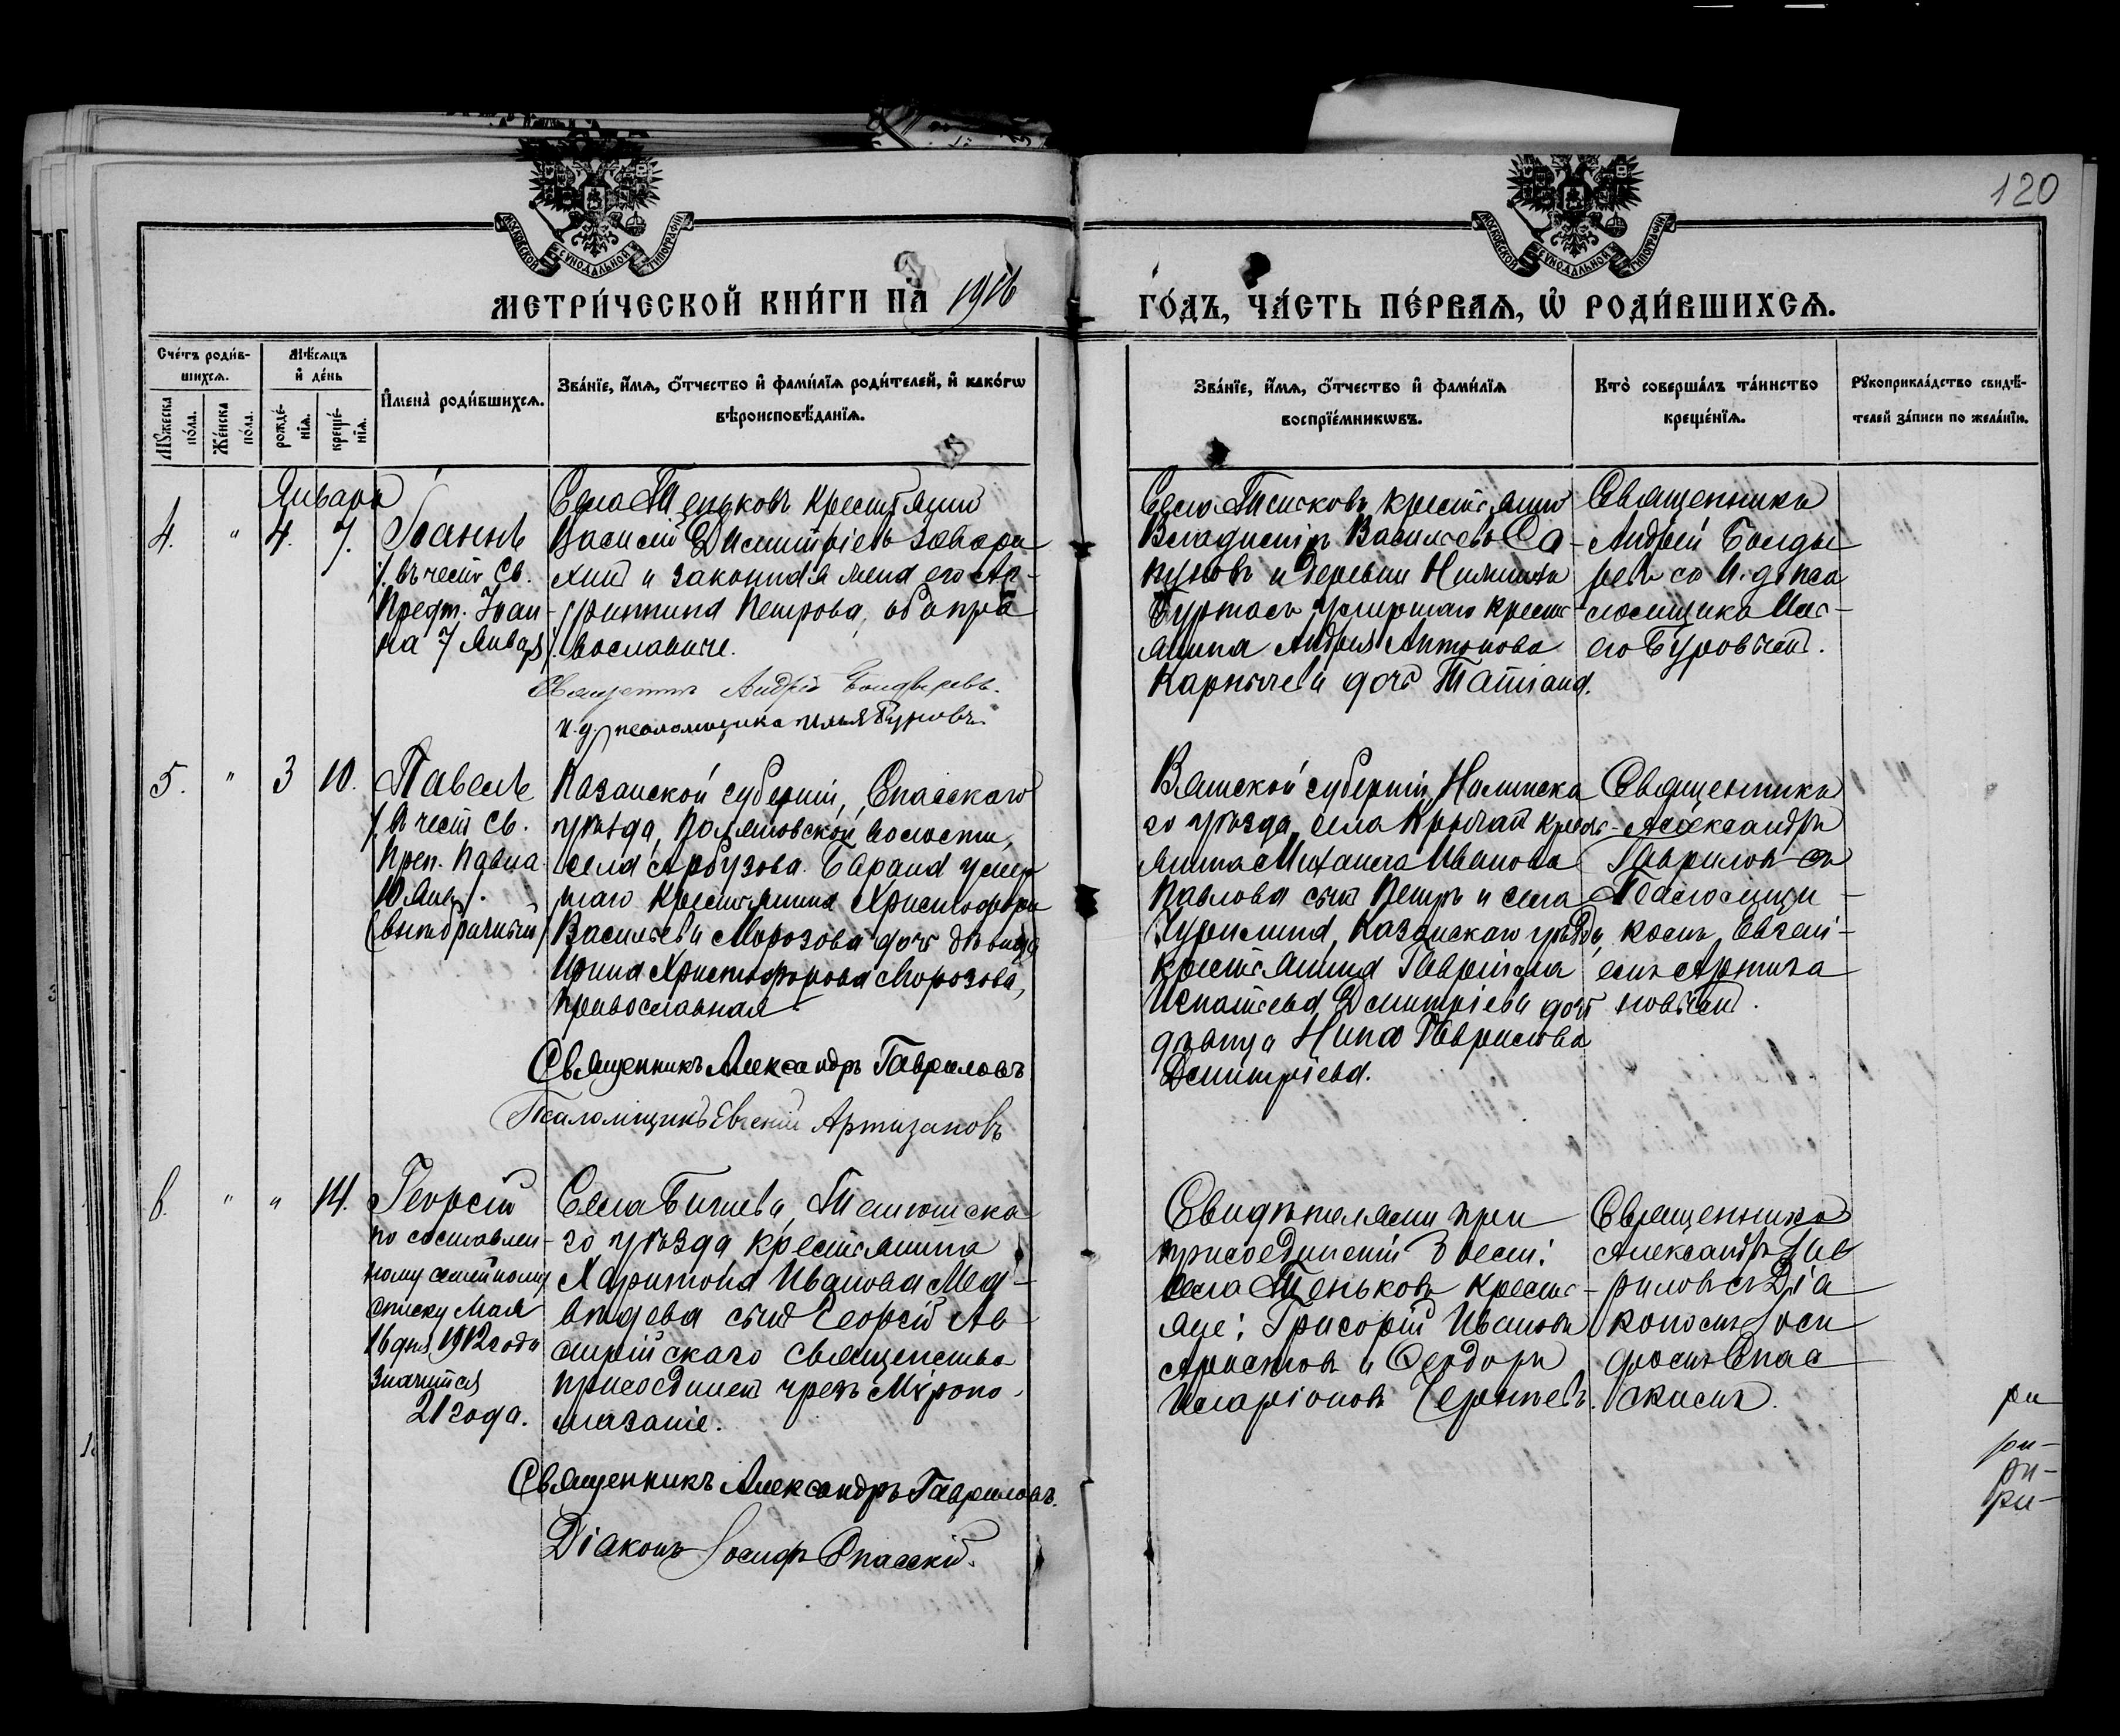 120
МОСКОВСКОЙ СѴНОДАЛЬНОЙ ТИПОГРАФІИ
МОСКОВСКОЙ СѴНОДАЛЬНОЙ ТИПОГРАФІИ
МЕТРИ́ЧЕСКОЙ КНИ́ГИ НА̀ 1916
ГО́ДЪ, ЧА́СТЬ ПЕ́РВАѦ, Ѡ҆ РОДИ́ВШИХСѦ.
Сче́тъ роди́в-
шихсѧ.
Мꙋ́жеска по́ла.
Же́нска по́ла.
Мѣ́сѧцъ
и҆ де́нь
рожде́-
нїѧ.
креще́-
нїѧ.
И҆мена̀ роди́вшихсѧ.
Зва́нїе, и҆́мѧ, ѻ҆́тчество и҆ фами́лїѧ роди́телей, и҆ како́гѡ
вѣроисповѣ́данїѧ.
Зва́нїе, и҆́мѧ, ѻ҆́тчество и҆ фами́лїѧ
воспрїе́мникѡвъ.
Кто̀ соверша́лъ та́инство
креще́нїѧ.
Рꙋкоприкла́дство свидѣ́-
телей за́писи по жела́нїю.
Января
4. " 4. 7.
Іоаннъ
/. въ честь Св.
Предт. Іоан-
на 7 Января/.
Села Теньковъ крестьянинъ
Василій Димитріевъ Захари
хинъ и законная жена его
Петрова, оба пра
вославные.
Священникъ Андрей Болдыревъ.
и. д. псаломщика Илья Буровъ
Села Теньковъ крестьянинъ
Владиміръ Васильевъ Са-
пуновъ и деревни
Буртасъ умершаго крест-
янина Андрея Антонова
дочь Татіана.
Священникъ
Андрей Болды
ревъ со и. д. пса
ломщика Иль-
ею Буровымъ.
5. " 3 10.
Павелъ
/. въ честь Св.
Преп. Павла
10 Янв./.
(внѣбрачный)
Казанской губерніи, Спасскаго
уѣзда, волости,
села Арбузова Барана умер
шаго крестьянина Христофора
Васильева Морозова дочь дѣвица
Ирина Христофорова Морозова,
православная
Священникъ Александръ Гавриловъ
Псаломщикъ Евгеній Артизановъ
Вятской губерніи, Нолинска
го уѣзда, села крестъ-
янина Михаила Иванова
Павлова сынъ Петръ и села
Чурилина, Казанскаго уѣзда,
крестьянина Гавріила
Игнатьева Димитріева дочь
дѣвица Нина Гаврилова
Димитріева.
Священникъ
Александръ
Гавриловъ съ
Псаломщи-
комъ Евгені-
емъ Артиза
новымъ.
6. " " 14.
Георгій
по составлен-
ному семейному
списку Мая
16 дня 1912 года
значится
21 года.
Села Тетюшска
го уѣзда крестьянина
Харитона Иванова Мед-
вѣдева сынъ Георгій Ав-
стрійскаго священства
присоединенъ чрезъ Мѵропо-
мазаніе.
Священникъ Александръ Гавриловъ.
Діаконъ Іосифъ Спасскій.
Свидѣтелями при
присоединеніи были:
села Теньковъ крестъ-
яне: Григорій Ивановъ
Аристовъ и Ѳеодоръ
Иларіоновъ
Священникъ
Александръ Гав
риловъ съ Діа
кономъ Іоси
фомъ Спас
скимъ.
ри
ри-
ри-
ри-